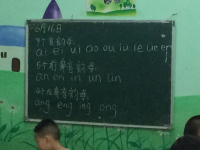 6月16日
9个复韵母:
ai ei ui ao ou iu ie üe er
5个前鼻音韵母:
an en in un ün
4个后鼻音韵母:
ang eng ing ong